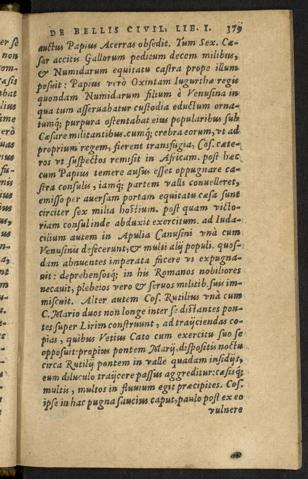 DE BELLIS CIVIL. LIB. I. 379
auctus Papius Acerras obsedit. Tum Sex. Cæ-
sar accitis Gallorum peditum decem milibus,
& Numidarum equitatu castra prope illum
posuit: Papius verò Oxintam Iugurthæ regis
quondam Numidarum filium è Venusina in
qua tum asseruabatur custodia eductum orna-
tumq́; purpura ostentabat eius popularibus sub
Cæsare militantibus. cumq́; crebra eorum, vt ad
proprium regem, fierent transfugia, Cos. cæte-
ros vt suspectos remisit in Africam. post hæc
cum Papius temere ausus esset oppugnare ca-
stra consulis, iamq́; partem valli conuelleret,
emisso per auersam portam equitatu cæsa sunt
circiter sex milia hostium. post quam victo-
riam consul inde abduxit exercitum. ad Iuda-
cilium autem in Apulia Canusini vnà cum
Venusinis defecerunt, & multi alij populi. quos-
dam abnuentes imperata facere vi expugna-
uit: deprehensosq́; in his Romanos nobiliores
necauit, plebeios vero & seruos militib. suis im-
miscuit. Alter autem Cos. Rutilius vnà cum
C. Mario duos non longe inter se distantes pon-
tes super Lirim construunt, ad traijciendas co-
pias, quibus Vetius Cato cum exercitu suo se
opposuit: propius pontem Marij. dispositis noctu
circa Rutilij pontem in valle quadam insidijs,
eum diluculo traijcere passus aggreditur: cæsisq́;
multis, multos in fluuium egit præcipites. Cos.
ipse in hac pugna saucius caput, paulo post ex eo
vulnere